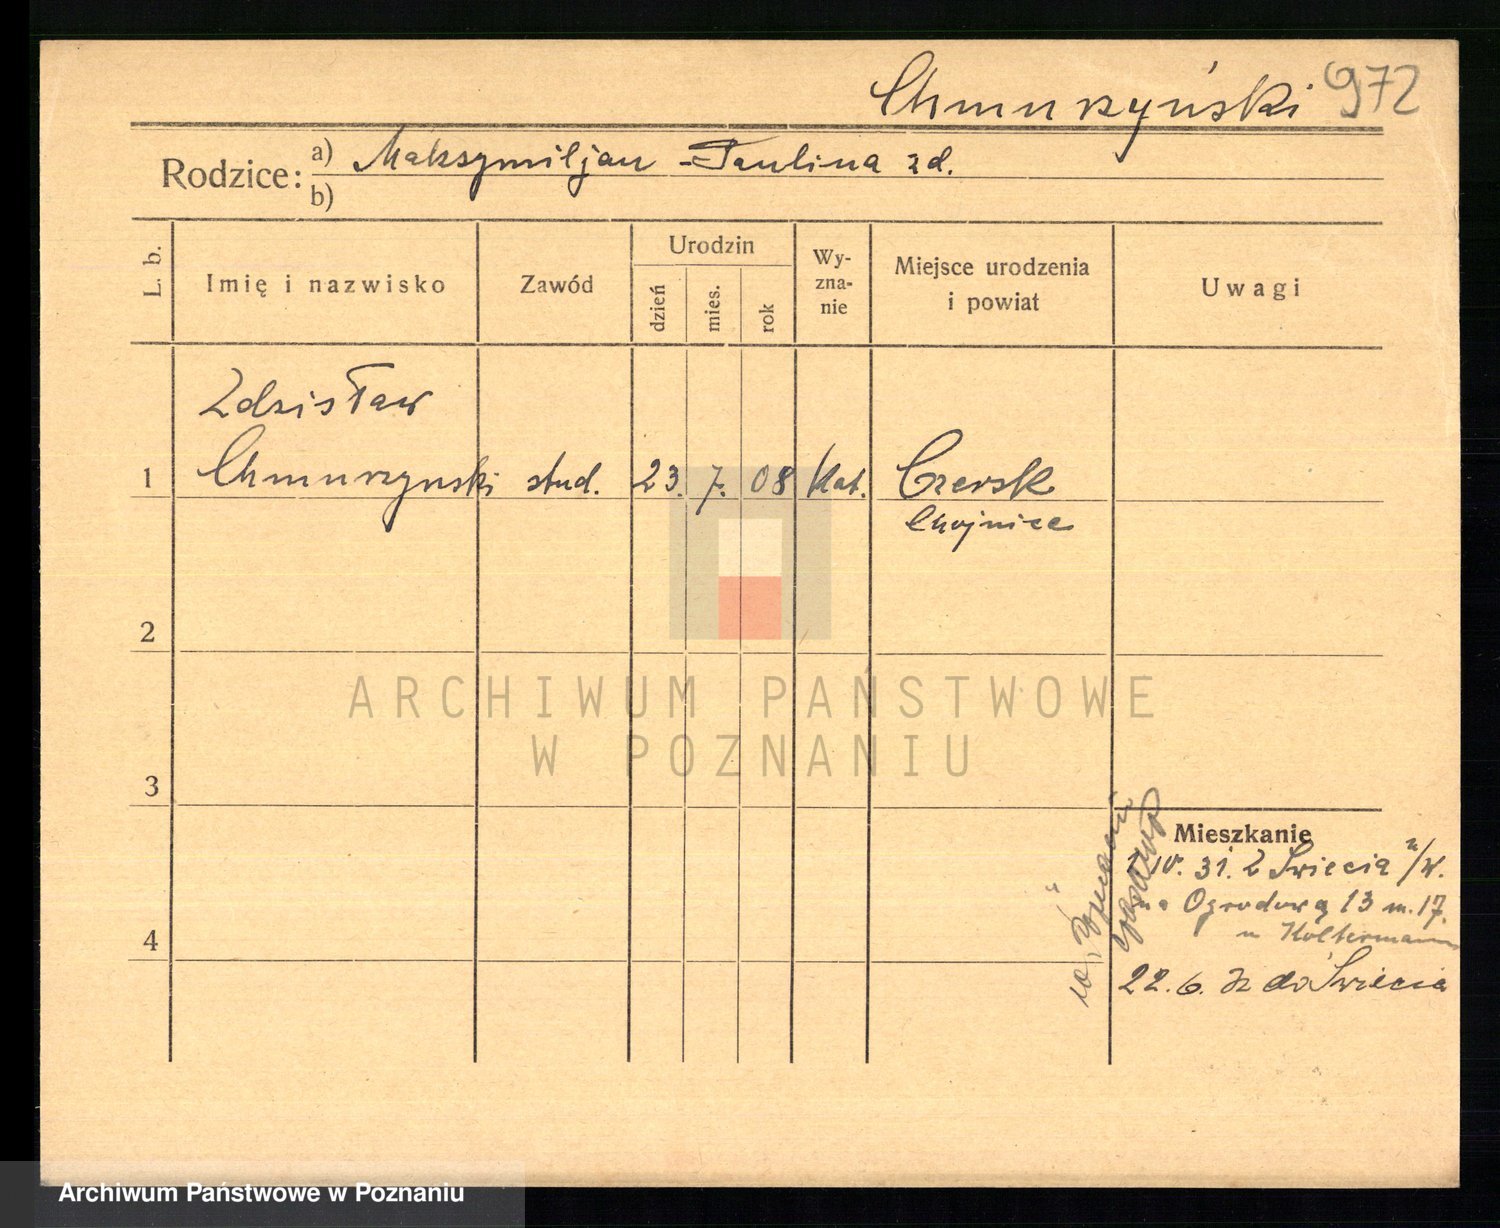 Chmurzyński 972
Rodzice: a) Maksymiljan - Paulina zd.
b)
L. b.
Imię i nazwisko
Zawód
Urodzin
dzień
mies.
rok
Wy-
zna-
nie
Miejsce urodzenia
i powiat
Uwagi
Zdzisław
1 Chmurzynski stud. 23. 7. 08 Kat. Czersk
Chojnice
2
ARCHIWUM PAŃSTWOWE
W POZNANIU
3
Mieszkanie
31. z Świecia n/W.
na Ogrodową 13 m. 17.
u Koltermann
4
22.6. 32 do Świecia
Archiwum Państwowe w Poznaniu